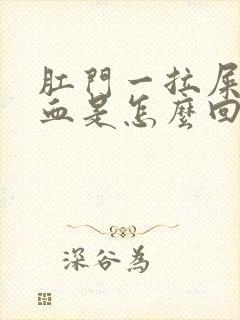 肛門一拉屎
血是怎麼回
深谷為